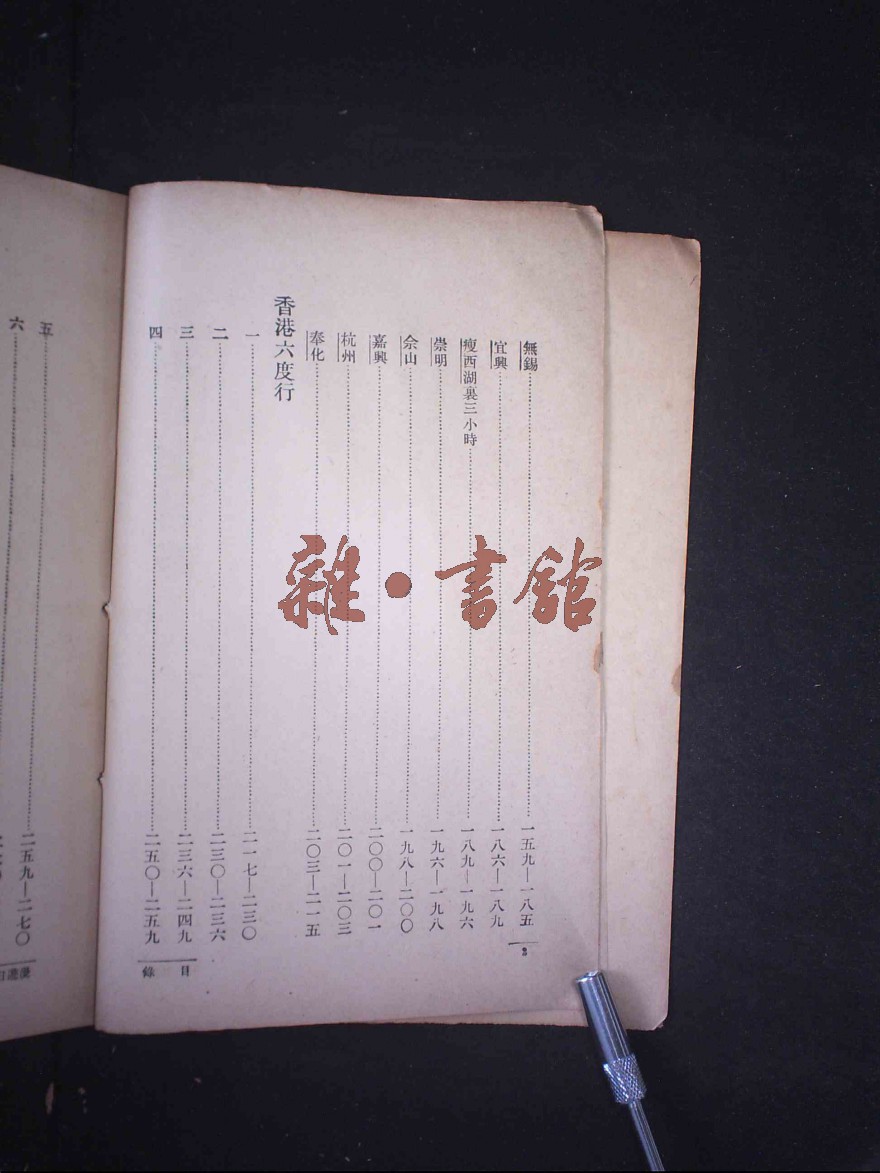 無錫……一五九—一八五
宜興……一八六—一八九
瘦西湖裏三小時……一八九—一九六
崇明……一九六—一九八
佘山……一九八—二〇〇
嘉興……二〇〇—二〇一
杭州……二〇一—二〇三
奉化……二〇三—二一五
香港六度行
一……二一七—二三〇
二……二三〇—二三六
三……二三六—二四九
四……二五〇—二五九
目錄
2
五……二五九—二七〇
六
雜·書館